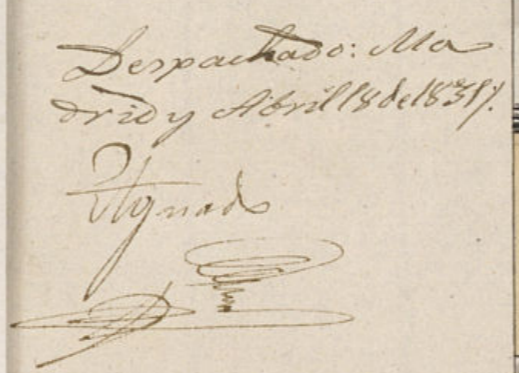 Despachado: Ma
drid y Abril 18 de 1837.
Aguado